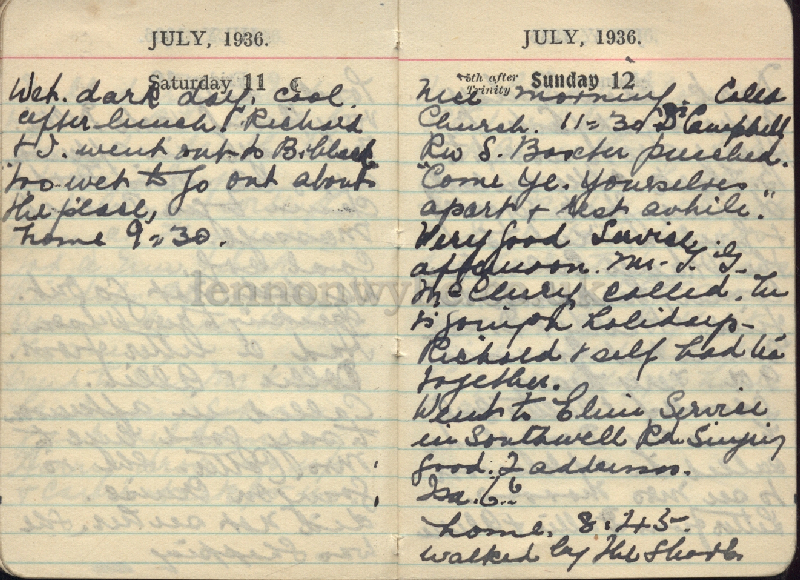 JULY, 1936.
Saturday 11
Wet. dark day, cool.
after lunch Richard
& I. went out to
too wet to go out about
the place,
home 9=30.
JULY, 1936.
5th after Trinity Sunday 12
Nice morning. Called
Church. 11=30 Dr Campbell
Rev S. Baxter preached.
"Come Ye. Yourselves
apart & rest awhile."
Very good Service.
afternoon. Mr. T. G.
McClury called. He
is going on holidays-
Richard & self had tea
together.
Went to Elim Service
in Southwell Rd Singing
good. 2 addresses.
Isa. 6.
home. 8.45.
Walked by the Shore.
lennonwy